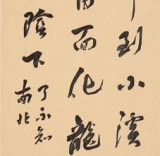 行到小溪
面化龍
陰下
了不知
南北